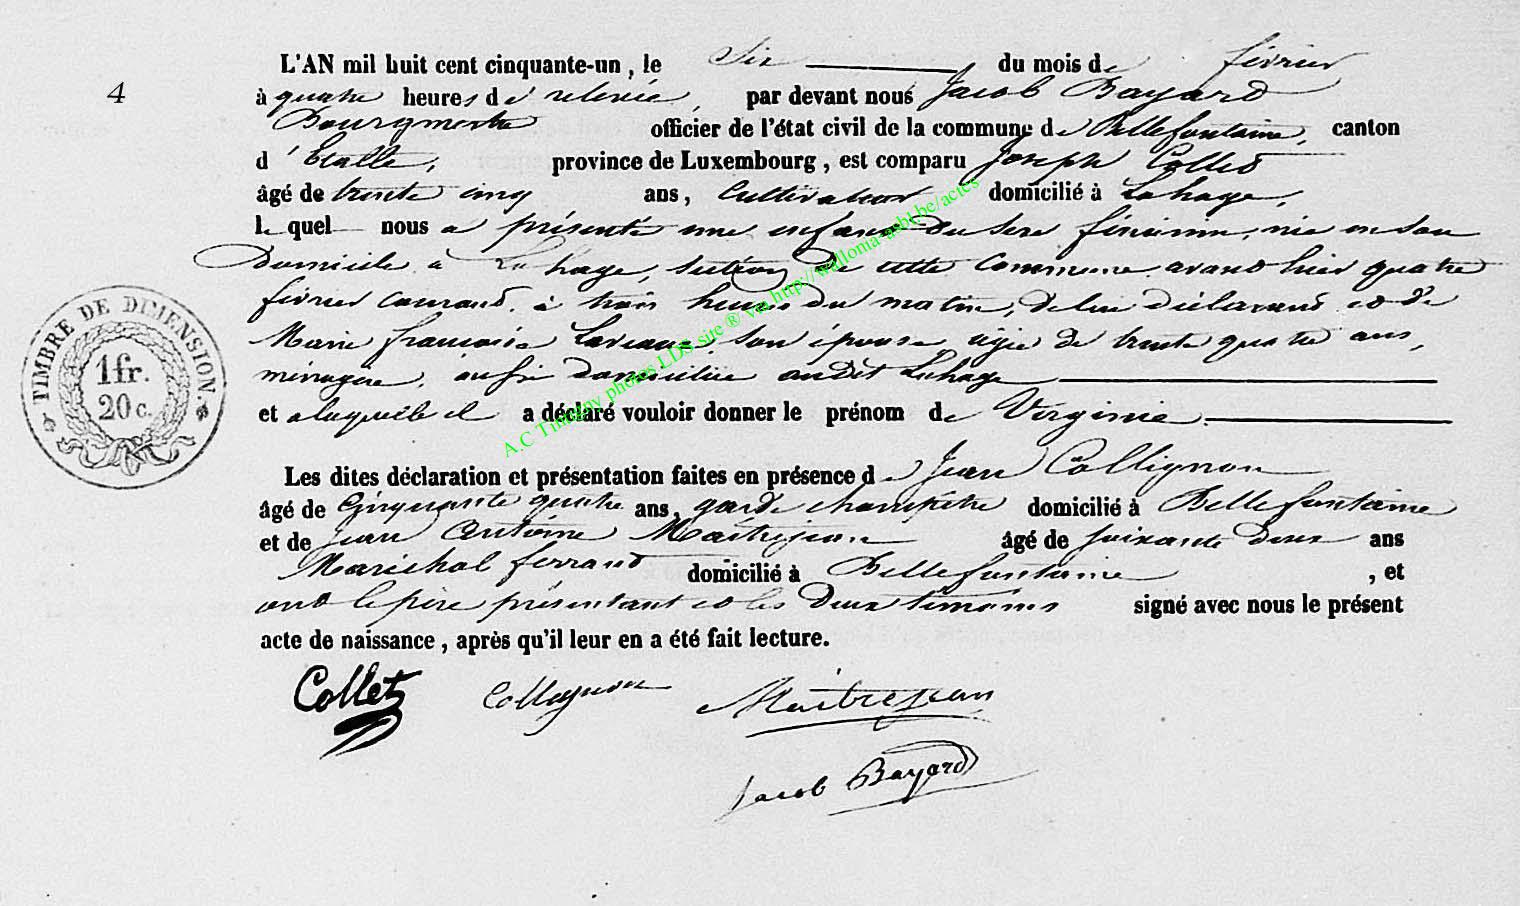 4
L'AN mil huit cent cinquante-un, le six du mois de février
à quatre heures de relevée, par devant nous Jacob Bayard
Bourgmestre officier de l'état civil de la commune de Bellefontaine, canton
d'Etalle, province de Luxembourg, est comparu Joseph Collet
âgé de trente cinq ans, Cultivateur domicilié à Lahage,
lequel nous a présenté une enfant du sexe féminin, née en son
Domicile à La hage, section de cette Commune, avant hier quatre
février courant, à trois heures du matin, de lui déclarant et de
Marie françoise son épouse agée de trente quatre ans,
ménagère, aussi domiciliée audit Lahage
et a laquelle il a déclaré vouloir donner le prénom de Virginie.
Les dites déclaration et présentation faites en présence de Jean Collignon
âgé de Cinquante quatre ans, garde champêtre domicilié à Bellefontaine
et de Jean Antoine Maitrejean âgé de soixante deux ans
Maréchal ferrant domicilié à Bellefontaine, et
ont le père présentant et les deux témoins signé avec nous le présent
acte de naissance, après qu'il leur en a été fait lecture.
Collet Collignon Maitrejean
Jacob Bayard
TIMBRE DE DIMENSION.
1 fr.
20 c.
A.C Tintigny photos LDS site ® via http://wallonia-asbl.be/actes